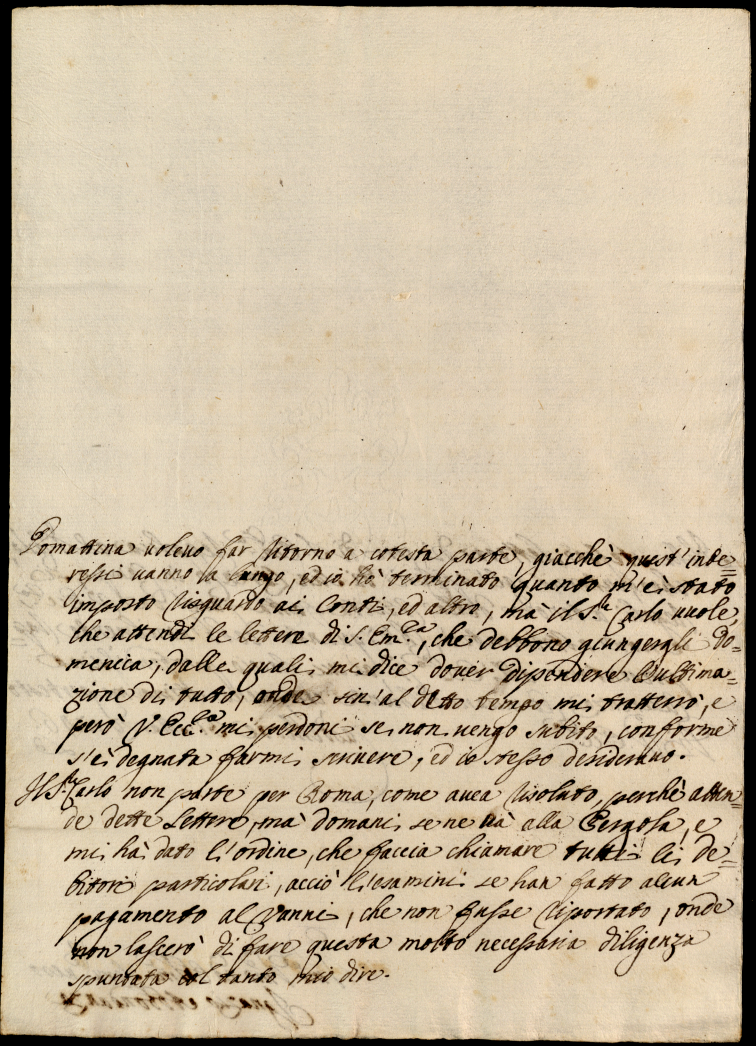 Domattina volevo far ritorno a cotesta parte, giacchè quest'inte=
ressi vanno a lungo, ed io hò terminato quanto m'è stato
imposto risguardo ai Conti, ed altro, mà il S.r Carlo vuole,
che attendi le lettere di S. Em.za, che debbono giungergli Do=
menica, dalle quali mi dice dover dipendere l'ultima=
zione di tutto, onde sin'al detto tempo mi tratterrò, e
però V. Ecc.za mi perdoni se non vengo subito, conforme
s'è degnata farmi scrivere, ed io stesso desideravo.
Il S.r Carlo non parte per Roma, come avea risoluto, perchè atten=
de dette Lettere, mà domani se ne và alla Pergola, e
mi hà dato l'ordine, che faccia chiamare tutti li de=
bitori particolari, acciò l'esamini se han fatto alcun
pagamento al Vanni, che non fusse riportato, onde
non lascerò di fare questa molto necessaria diligenza
spuntata col tanto mio dire.